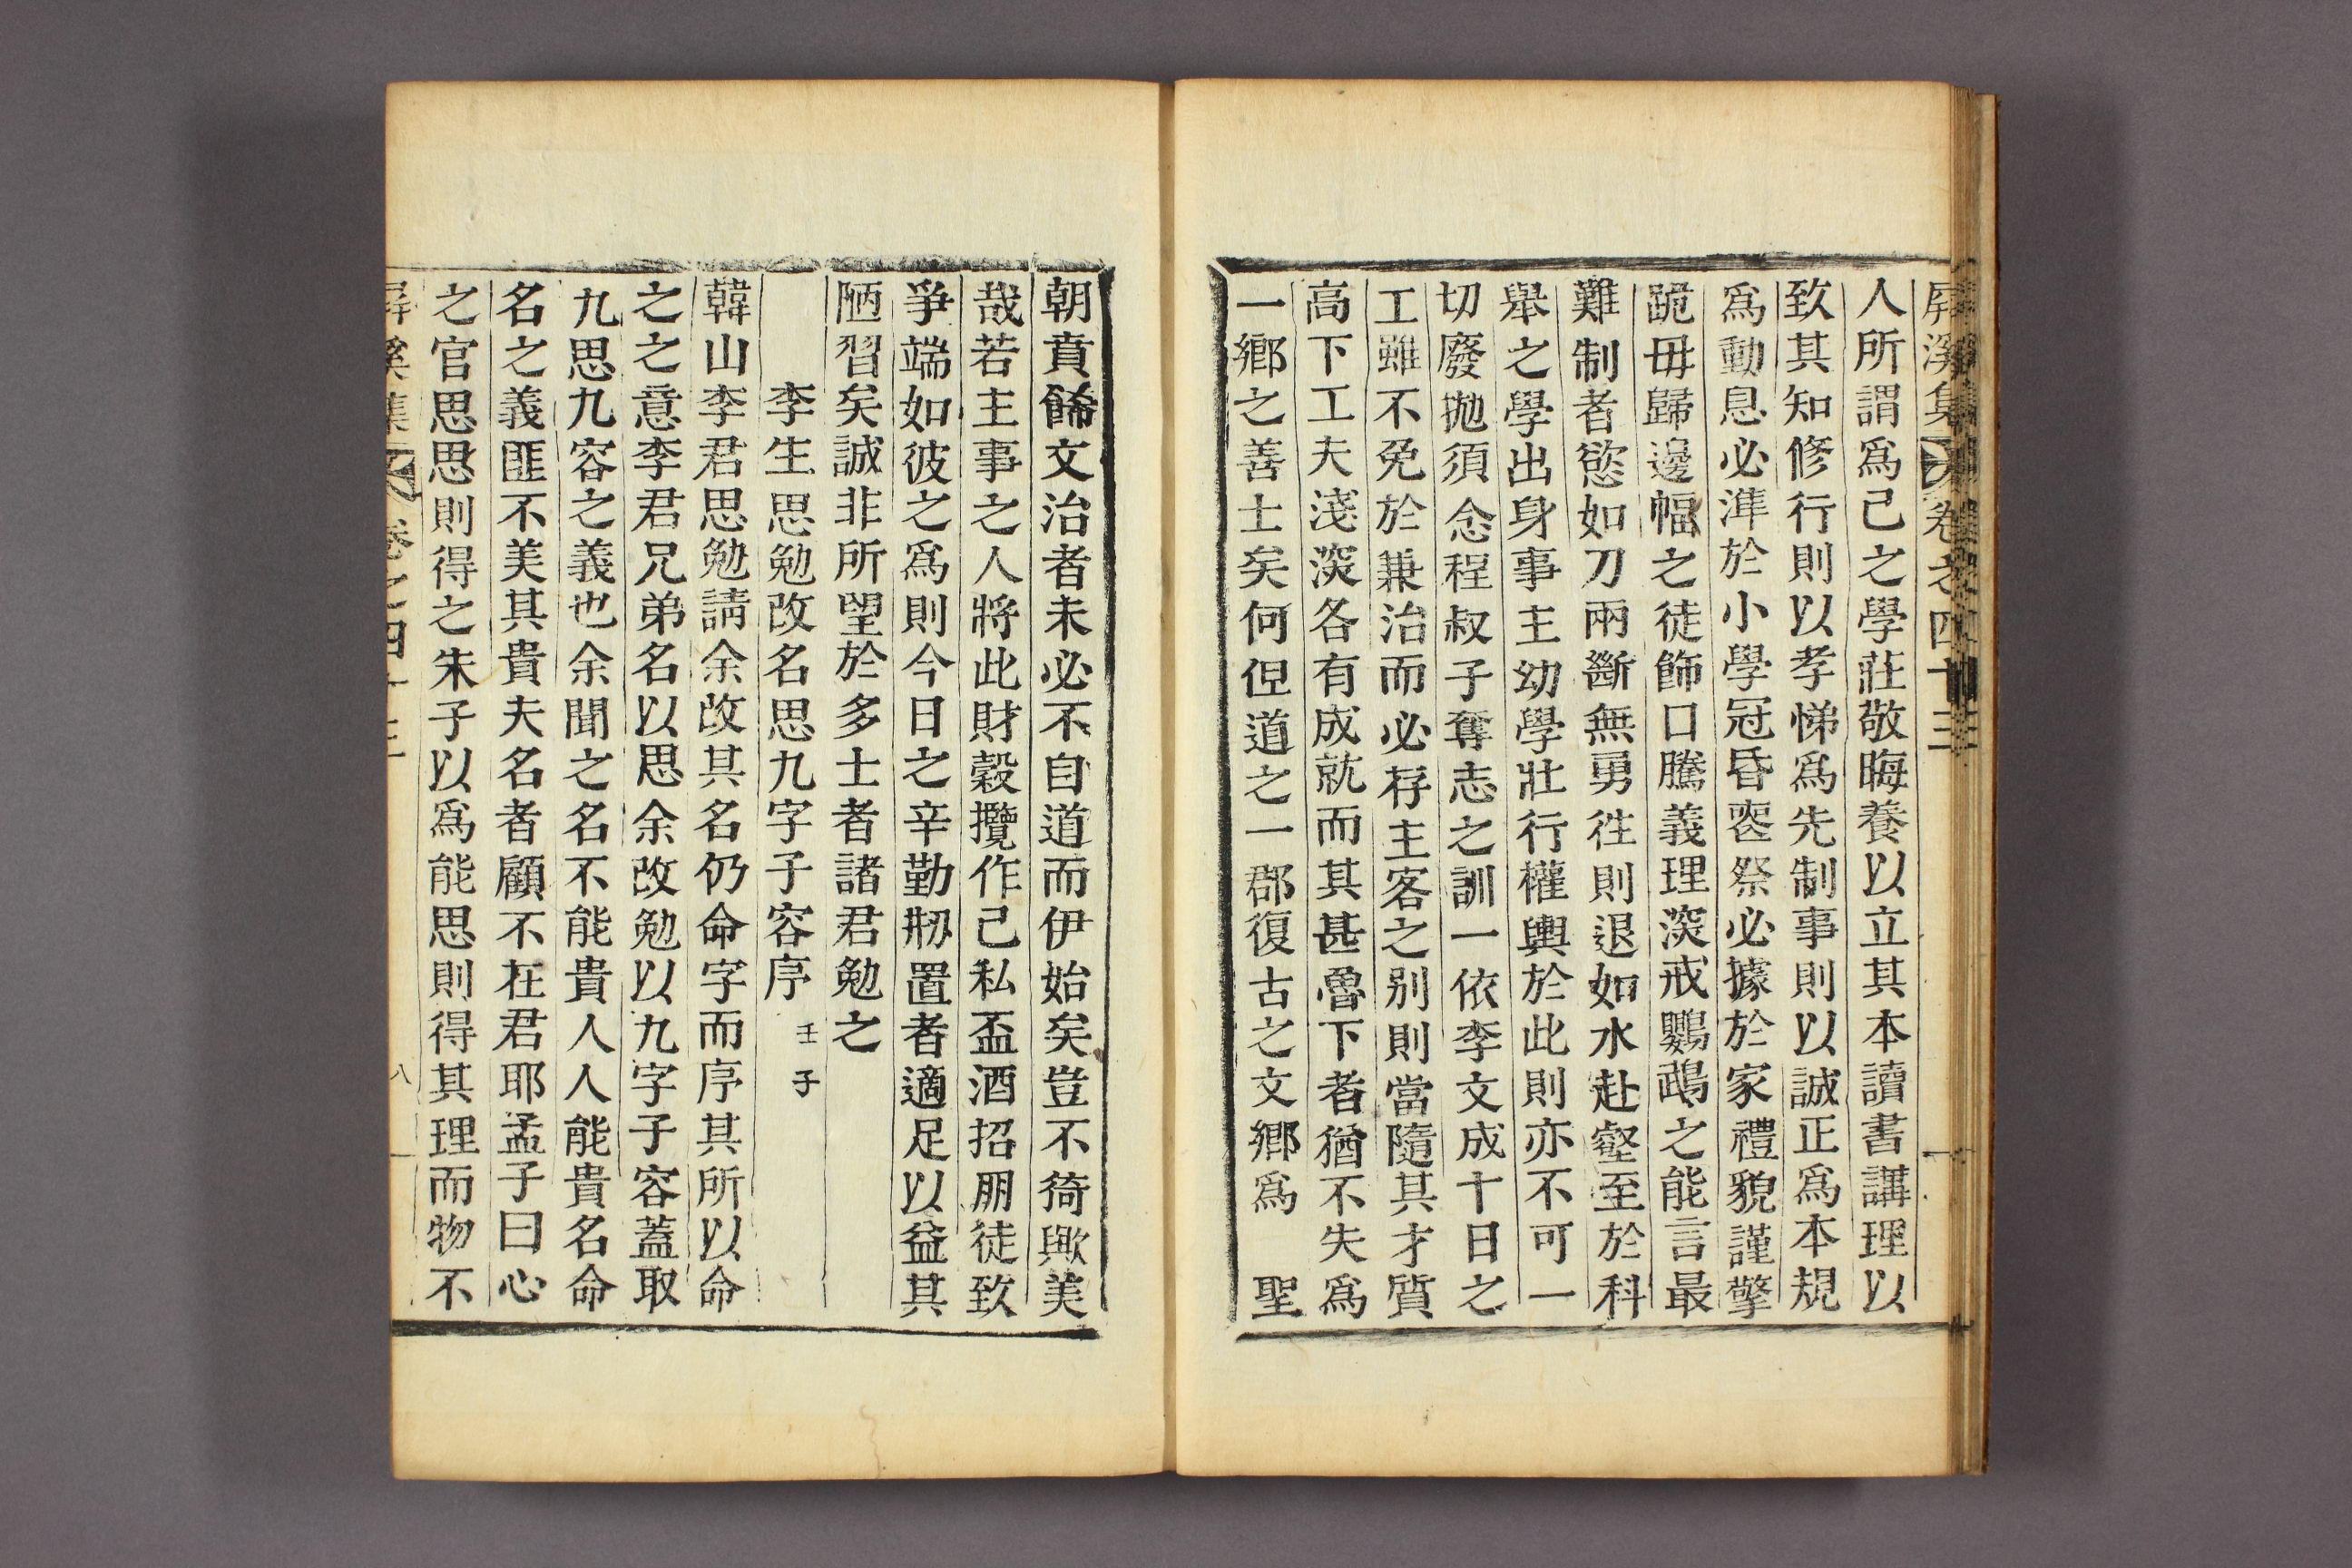 屛溪集 卷之四十三
人所謂爲己之學莊敬晦養以立其本讀書講理以
致其知修行則以孝悌爲先制事則以誠正爲本規
爲動息必準於小學冠昏喪祭必據於家禮貌謹擎
跪毋歸邊幅之徒飾口騰義理深戒鸚鵡之能言最
難制者慾如刀兩斷無勇徃則退如水赴壑至於科
舉之學出身事主幼學壯行權輿於此則亦不可一
切廢抛須念程叔子奪志之訓一依李文成十日之
工雖不免於兼治而必存主客之别則當隨其才質
高下工夫淺深各有成就而其甚魯下者猶不失爲
一鄕之善士矣何但道之一郡復古之文鄕爲 聖
朝賁餙文治者未必不自道而伊始矣豈不猗歟美
哉若主事之人將此財穀攬作己私盃酒招朋徒致
爭端如彼之爲則今日之辛勤刱置者適足以益其
陋習矣誠非所望於多士者諸君勉之
李生思勉改名思九字子容序 壬子
韓山李君思勉請余改其名仍命字而序其所以命
之之意李君兄弟名以思余改勉以九字子容蓋取
九思九容之義也余聞之名不能貴人人能貴名命
名之義匪不美其貴夫名者顧不在君耶孟子曰心
之官思思則得之朱子以爲能思則得其理而物不
屛溪集 卷之四十三 八